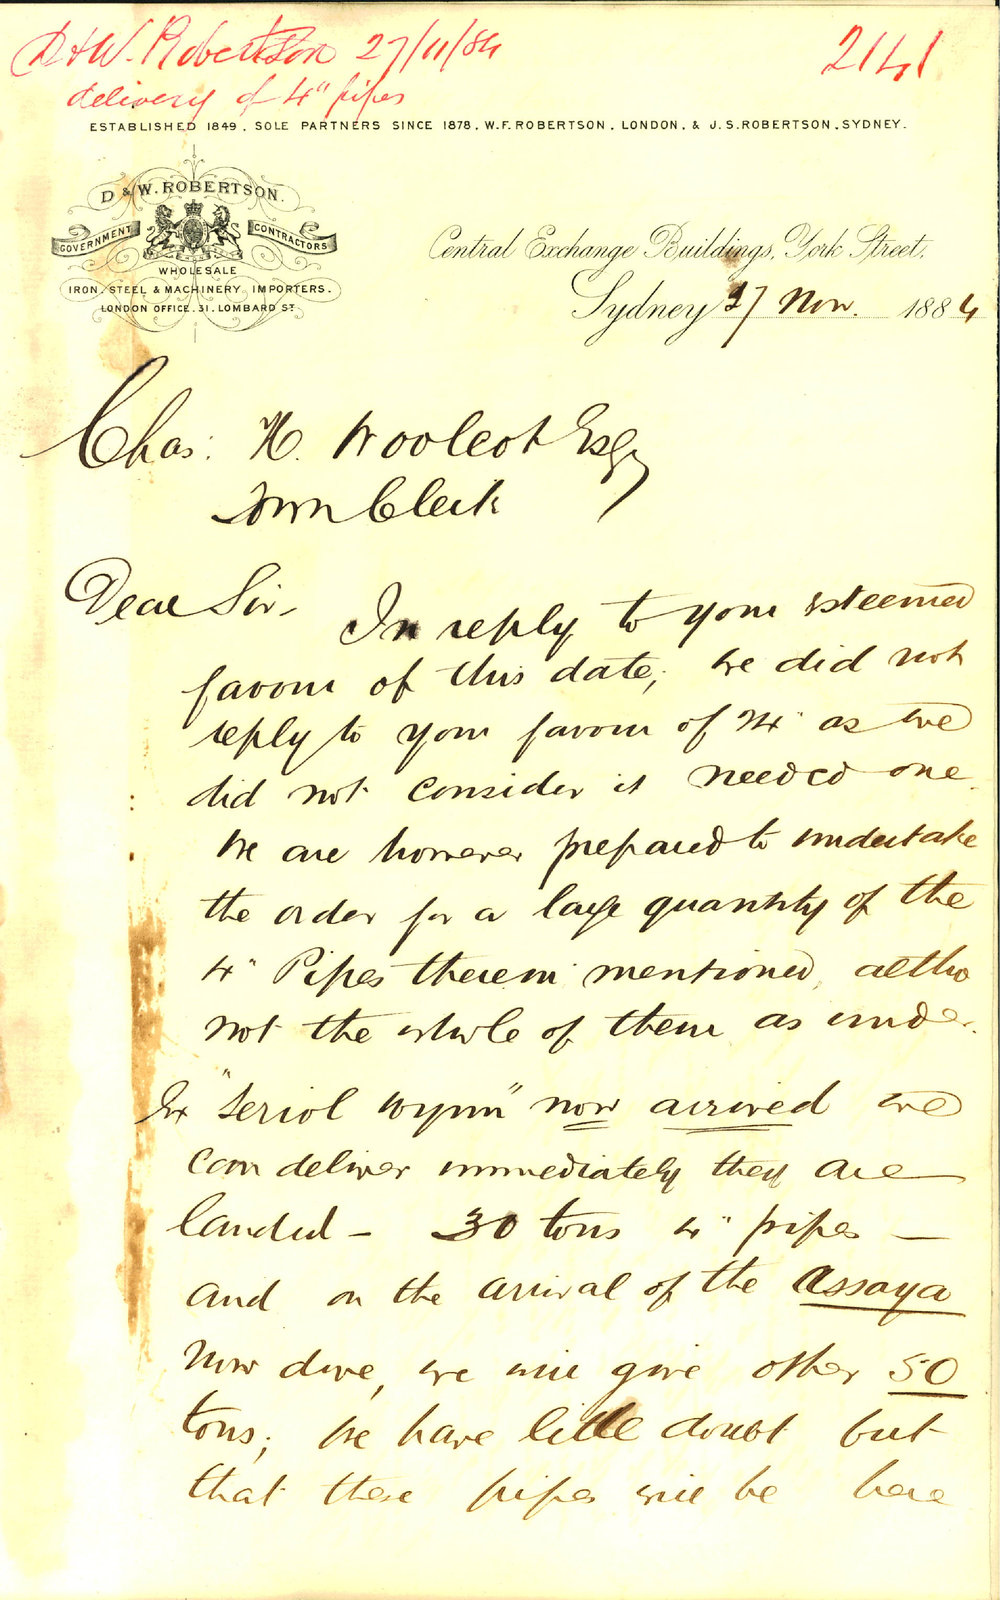 D & W. Robertson 27/11/84
2141
delivery of 4" pipes
ESTABLISHED 1849. SOLE PARTNERS SINCE 1878. W.F. ROBERTSON. LONDON. & J.S. ROBERTSON. SYDNEY.
D & W. ROBERTSON.
GOVERNMENT CONTRACTORS
WHOLESALE
IRON. STEEL & MACHINERY IMPORTERS.
LONDON OFFICE. 31. LOMBARD ST
Central Exchange Buildings, York Street,
Sydney 27 Nov. 1884
Chas: H. Woolcot Esqr
Town Clerk
Dear Sir, In reply to your esteemed
favour of this date, we did not
reply to your favour of 24" as we
did not consider it needed one.
We are however prepared to undertake
the order for a large quantity of the
4" Pipes therein mentioned, altho
not the whole of them as under.
Ex "Seriol Wynn" now arrived we
can deliver immediately they are
landed - 30 tons 4" pipes -
and on the arrival of the Assaya
now due, we will give other 50
tons; We have little doubt but
that these pipes will be here